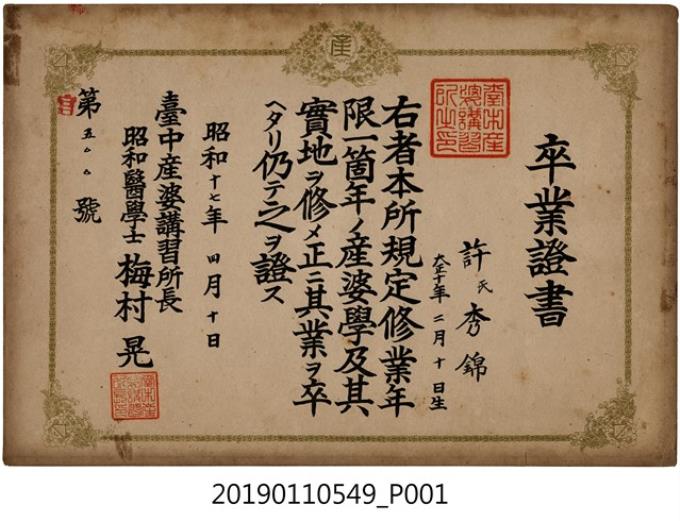 産
卒業證書
許氏秀錦
大正十年二月十日生
右者本所規定修業年
限一箇年ノ産婆學及其
實地ヲ修メ正ニ其業ヲ卒
ヘタリ仍テ之ヲ證ス
昭和十七年四月十日
臺中産婆講習所長
昭和醫學士 梅村晃
第五〇〇號
20190110549_P001